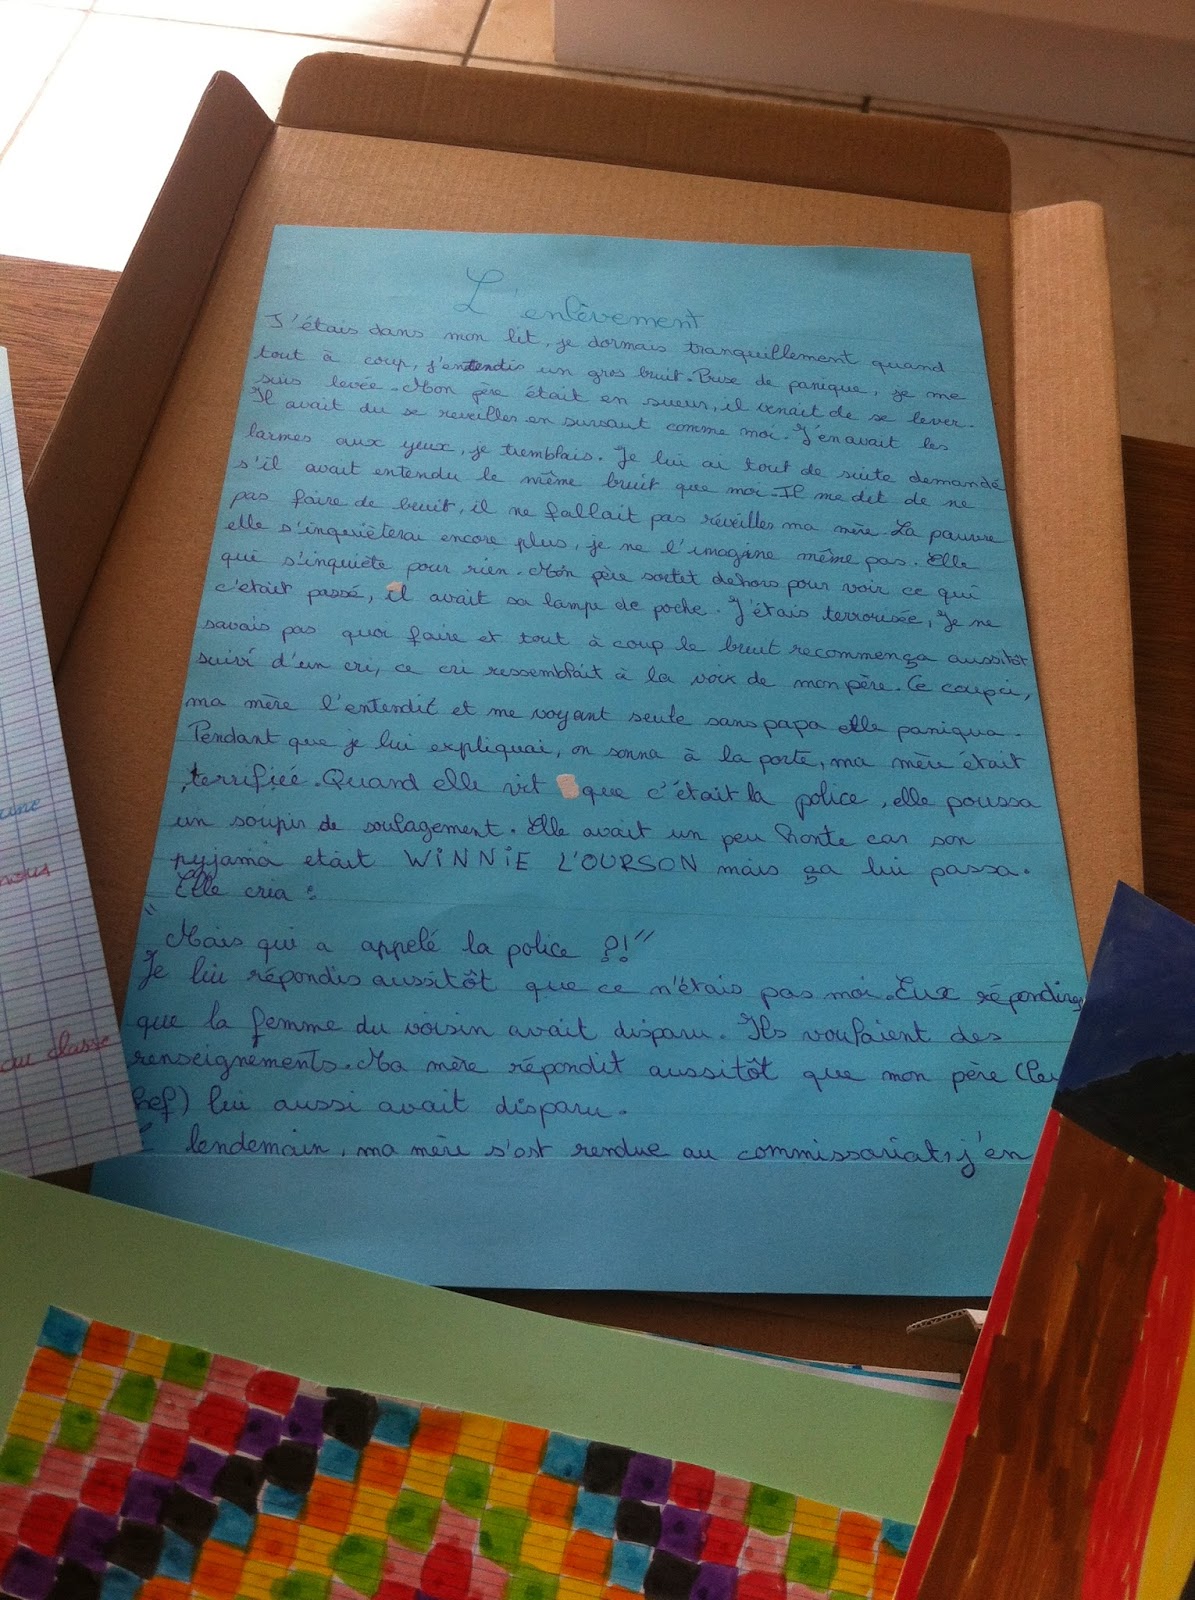 L'enlèvement
J'étais dans mon lit, je dormais tranquillement quand
tout à coup, j'entendis un gros bruit. Prise de panique, je me
suis levée. Mon père était en sueur, il venait de se lever.
Il avait du se reveiller en sursaut comme moi. J'en avait les
larmes aux yeux, je tremblais. Je lui ai tout de suite demandé
s'il avait entendu le même bruit que moi. Il me dit de ne
pas faire de bruit, il ne fallait pas réveiller ma mère. La pauvre
elle s'inquièterai encore plus, je ne l'imagine même pas. Elle
qui s'inquiéte pour rien. Mon père sortet dehors pour voir ce qui
c'était passé, il avait sa lampe de poche. J'étais terrorisée, je ne
savais pas quoi faire et tout à coup le bruit recommença aussitôt
suivi d'un cri, ce cri ressemblait à la voix de mon père. Ce coup ci,
ma mère l'entendit et me voyant seule sans papa elle paniqua.
Pendant que je lui expliquai, on sonna à la porte, ma mère était
terrifiée. Quand elle vit que c'était la police, elle poussa
un soupir de soulagement. Elle avait un peu honte car son
pyjama était WINNIE L'OURSON mais ça lui passa.
Elle cria :
"Mais qui a appelé la police ?!"
Je lui répondis aussitôt que ce n'étais pas moi. Eux répondirent
que la femme du voisin avait disparu. Ils voulaient des
renseignements. Ma mère répondit aussitôt que mon père (leu
hef) lui aussi avait disparu.
lendemain, ma mère s'est rendue au commissariat, j'en
une
nous
du classe